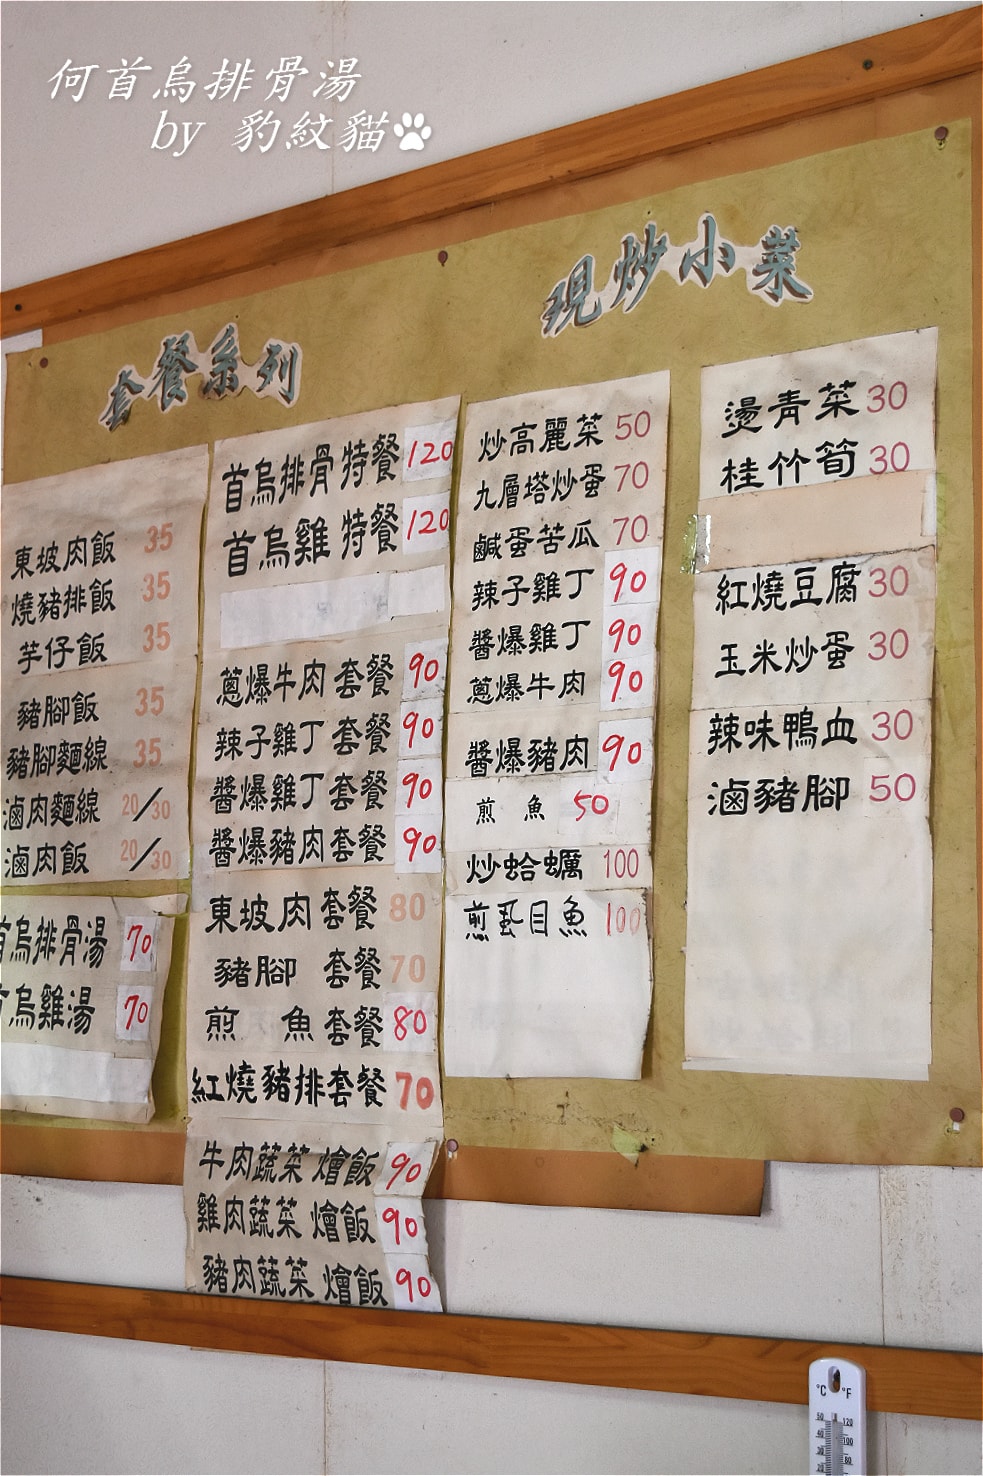 何首烏排骨湯
by 豹紋貓
套餐系列
現炒小菜
東坡肉飯 35
燒豬排飯 35
芋仔飯 35
豬腳飯 35
豬腳麵線 35
滷肉麵線 20/30
滷肉飯 20/30
首烏排骨湯 70
首烏雞湯 70
首烏排骨特餐 120
首烏雞特餐 120
蔥爆牛肉套餐 90
辣子雞丁套餐 90
醬爆雞丁套餐 90
醬爆豬肉套餐 90
東坡肉套餐 80
豬腳 套餐 70
煎 魚套餐 80
紅燒豬排套餐 70
牛肉蔬菜燴飯 90
雞肉蔬菜燴飯 90
豬肉蔬菜燴飯 90
炒高麗菜 50
九層塔炒蛋 70
鹹蛋苦瓜 70
辣子雞丁 90
醬爆雞丁 90
蔥爆牛肉 90
醬爆豬肉 90
煎 魚 50
炒蛤蠣 100
煎虱目魚 100
燙青菜 30
桂竹筍 30
紅燒豆腐 30
玉米炒蛋 30
辣味鴨血 30
滷豬腳 50
°C °F
50 120
40 100
30 80
20